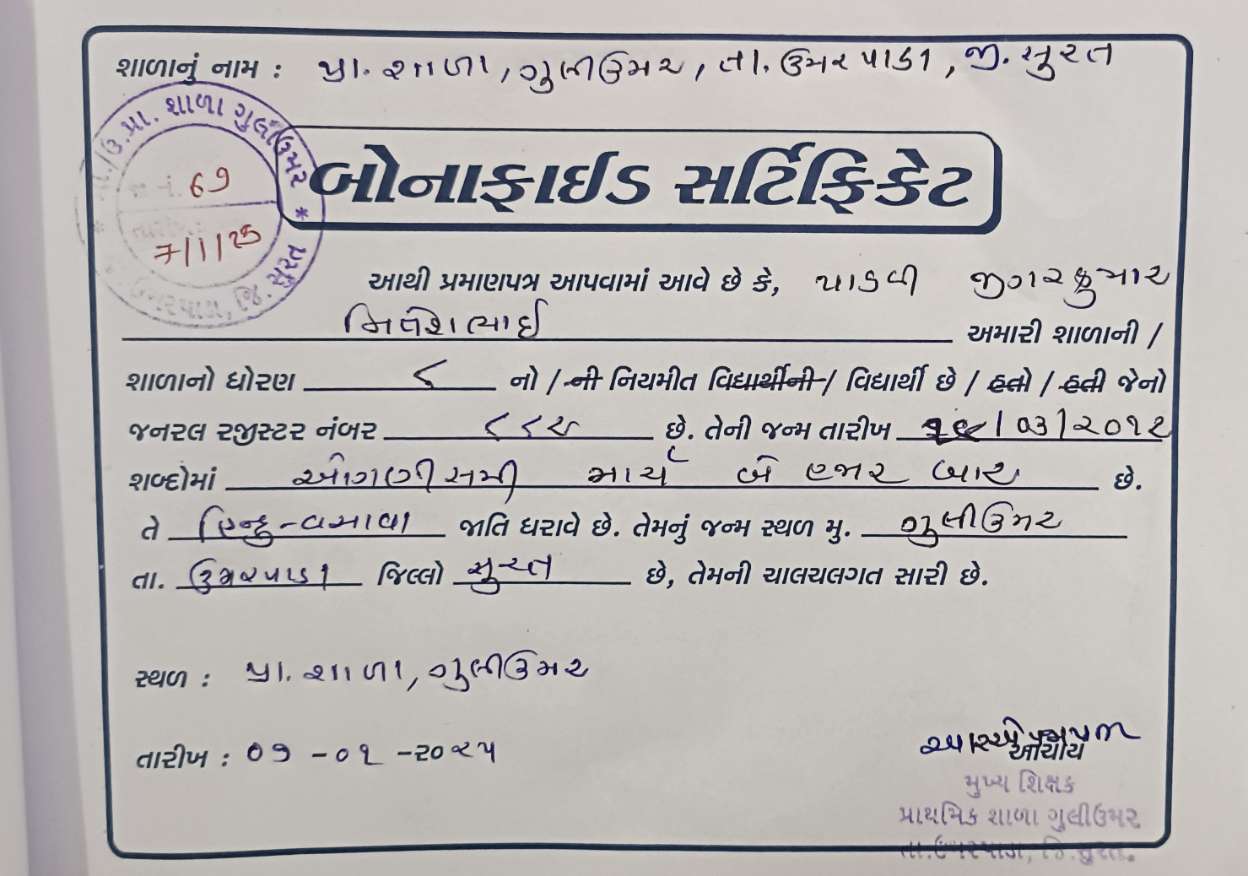 શાળાનું નામ : પ્રા. શાળા, ગુલીઉમર, તા. ઉમરપાડા, જી. સુરત
તા./ઉ.પ્રા. શાળા ગુલીઉમર * સુરત
જા.નં. 69
તારીખ: 7/1/25
ઉમરપાડા, જિ. સુરત *
બોનાફાઈડ સર્ટિફિકેટ
આથી પ્રમાણપત્ર આપવામાં આવે છે કે, પાડવી જીગરકુમાર
અમારી શાળાની /
શાળાનો ધોરણ ૮ નો / ની નિયમીત વિદ્યાર્થીની / વિદ્યાર્થી છે / હતો / હતી જેનો
જનરલ રજીસ્ટર નંબર ૮૮૨ છે. તેની જન્મ તારીખ ૧૯/03/૨૦૧૨
શબ્દોમાં ઓગણીસમી માર્ચ બે હજાર બાર છે.
તે હિન્દુ-વસાવા જાતિ ધરાવે છે. તેમનું જન્મ સ્થળ મુ. ગુલીઉમર
તા. ઉમરપાડા જિલ્લો સુરત છે, તેમની ચાલચલગત સારી છે.
સ્થળ : પ્રા. શાળા, ગુલીઉમર
તારીખ : ૦૭ -૦૧ -૨૦૨૫
આચાર્ય
મુખ્ય શિક્ષક
પ્રાથમિક શાળા ગુલીઉમર
તા.ઉમરપાડા, જિ.સુરત.